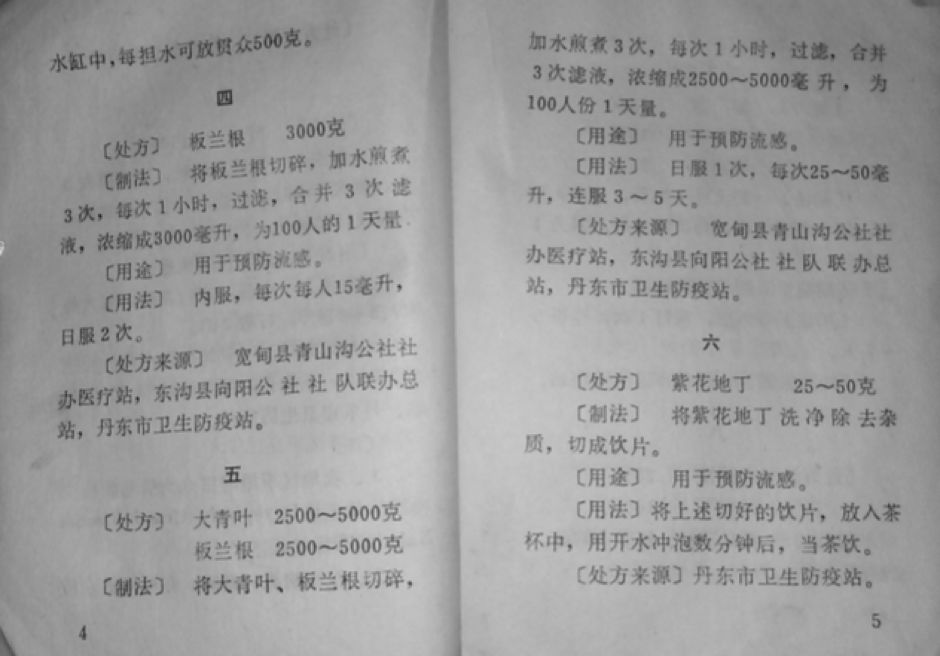 水缸中，每担水可放贯众500克。
四
〔处方〕 板兰根 3000克
〔制法〕 将板兰根切碎，加水煎煮
3次，每次1小时，过滤，合并 3 次滤
液，浓缩成3000毫升，为100人的1天量
〔用途〕 用于预防流感。
〔用法〕 内服，每次每人15毫升，
日服2次。
〔处方来源〕 宽甸县青山沟公社社
办医疗站，东沟县向阳公社社队联办总
站，丹东市卫生防疫站。
五
〔处方〕 大青叶 2500～5000克
板兰根 2500～5000克
〔制法〕 将大青叶、板兰根切碎，
4
加水煎煮3次，每次1小时，过滤，合并
3次滤液，浓缩成2500～5000毫升，为
100人份1天量。
〔用途〕 用于预防流感。
〔用法〕 日服1次，每次25～50毫
升，连服3～5天。
〔处方来源〕 宽甸县青山沟公社社
办医疗站，东沟县向阳公社社队联办总
站，丹东市卫生防疫站。
六
〔处方〕 紫花地丁 25～50克
〔制法〕 将紫花地丁洗净除去杂
质，切成饮片。
〔用途〕 用于预防流感。
〔用法〕将上述切好的饮片，放入茶
杯中，用开水冲泡数分钟后，当茶饮。
〔处方来源〕丹东市卫生防疫站。
5